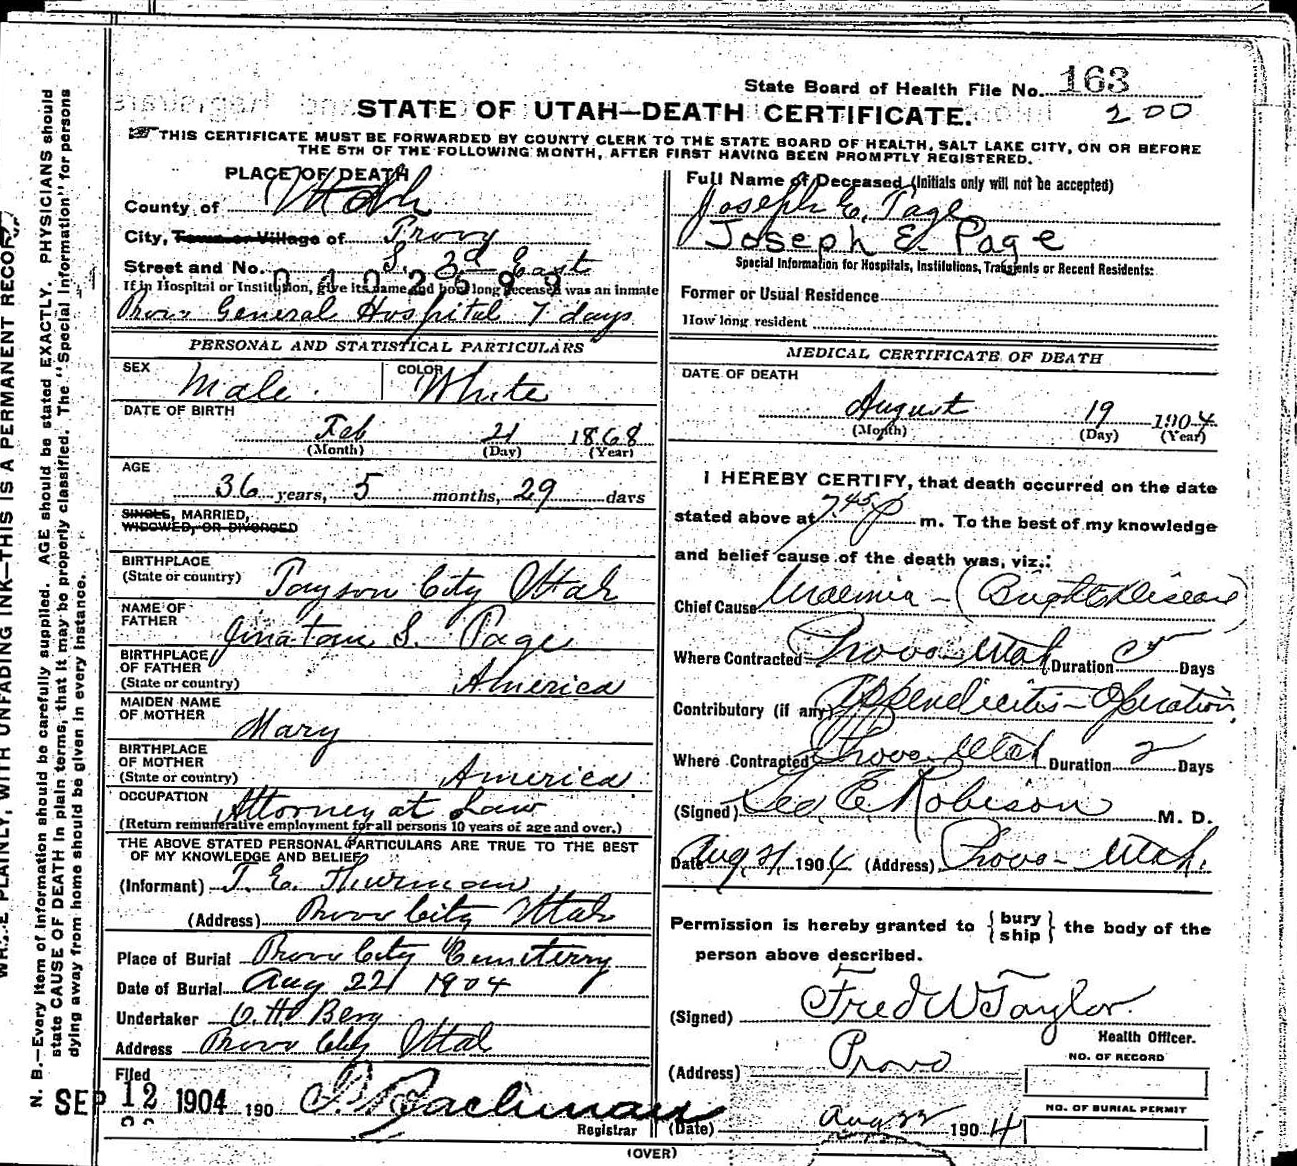 State Board of Health File No. 163
200
STATE OF UTAH—DEATH CERTIFICATE.
THIS CERTIFICATE MUST BE FORWARDED BY COUNTY CLERK TO THE STATE BOARD OF HEALTH, SALT LAKE CITY, ON OR BEFORE
THE 5TH OF THE FOLLOWING MONTH, AFTER FIRST HAVING BEEN PROMPTLY REGISTERED.
PLACE OF DEATH
County of Utah
City, Town or Village of Provo
Street and No. S. 3d East
0402599
If in Hospital or Institution, give its name and how long deceased was an inmate
Provo General Hospital 7 days
PERSONAL AND STATISTICAL PARTICULARS
SEX Male COLOR White
DATE OF BIRTH
Feb 21 1868
(Month) (Day) (Year)
AGE
36 years, 5 months, 29 days
SINGLE, MARRIED,
WIDOWED, OR DIVORCED
BIRTHPLACE
(State or country) Payson City Utah
NAME OF
FATHER Jinatam S. Page
BIRTHPLACE
OF FATHER
(State or country) America
MAIDEN NAME
OF MOTHER Mary
BIRTHPLACE
OF MOTHER
(State or country) America
OCCUPATION Attorney at Law
(Return remunerative employment for all persons 10 years of age and over.)
THE ABOVE STATED PERSONAL PARTICULARS ARE TRUE TO THE BEST
OF MY KNOWLEDGE AND BELIEF
(Informant) J. E. Thurman
(Address) Provo City Utah
Place of Burial Provo City Cemeterry
Date of Burial Aug 22 1904
Undertaker O. H. Berg
Address Provo City Utah
Filed
SEP 12 1904 190
Registrar
Full Name of Deceased (Initials only will not be accepted)
Joseph E. Page
Joseph E. Page
Special Information for Hospitals, Institutions, Transients or Recent Residents:
Former or Usual Residence
How long resident
MEDICAL CERTIFICATE OF DEATH
DATE OF DEATH
August 19 1904
(Month) (Day) (Year)
I HEREBY CERTIFY, that death occurred on the date
stated above at 7.45 p m. To the best of my knowledge
and belief cause of the death was, viz.:
Chief Cause Uraemia - (Brights Disease)
Where Contracted Provo Utah Duration 5 Days
Contributory (if any) Appendicitis - Operation,
Where Contracted Provo Utah Duration 2 Days
(Signed) Geo. E. Robison M. D.
Date Aug. 21, 1904 (Address) Provo - Utah.
Permission is hereby granted to { bury
ship } the body of the
person above described.
(Signed) Fred W Taylor
Health Officer.
(Address) Provo
NO. OF RECORD
NO. OF BURIAL PERMIT
(Date) Aug 22 1904
(OVER)
WRITE PLAINLY, WITH UNFADING INK—THIS IS A PERMANENT RECORD
N. B.—Every item of information should be carefully supplied. AGE should be stated EXACTLY. PHYSICIANS should
state CAUSE OF DEATH in plain terms, that it may be properly classified. The "Special Information" for persons
dying away from home should be given in every instance.